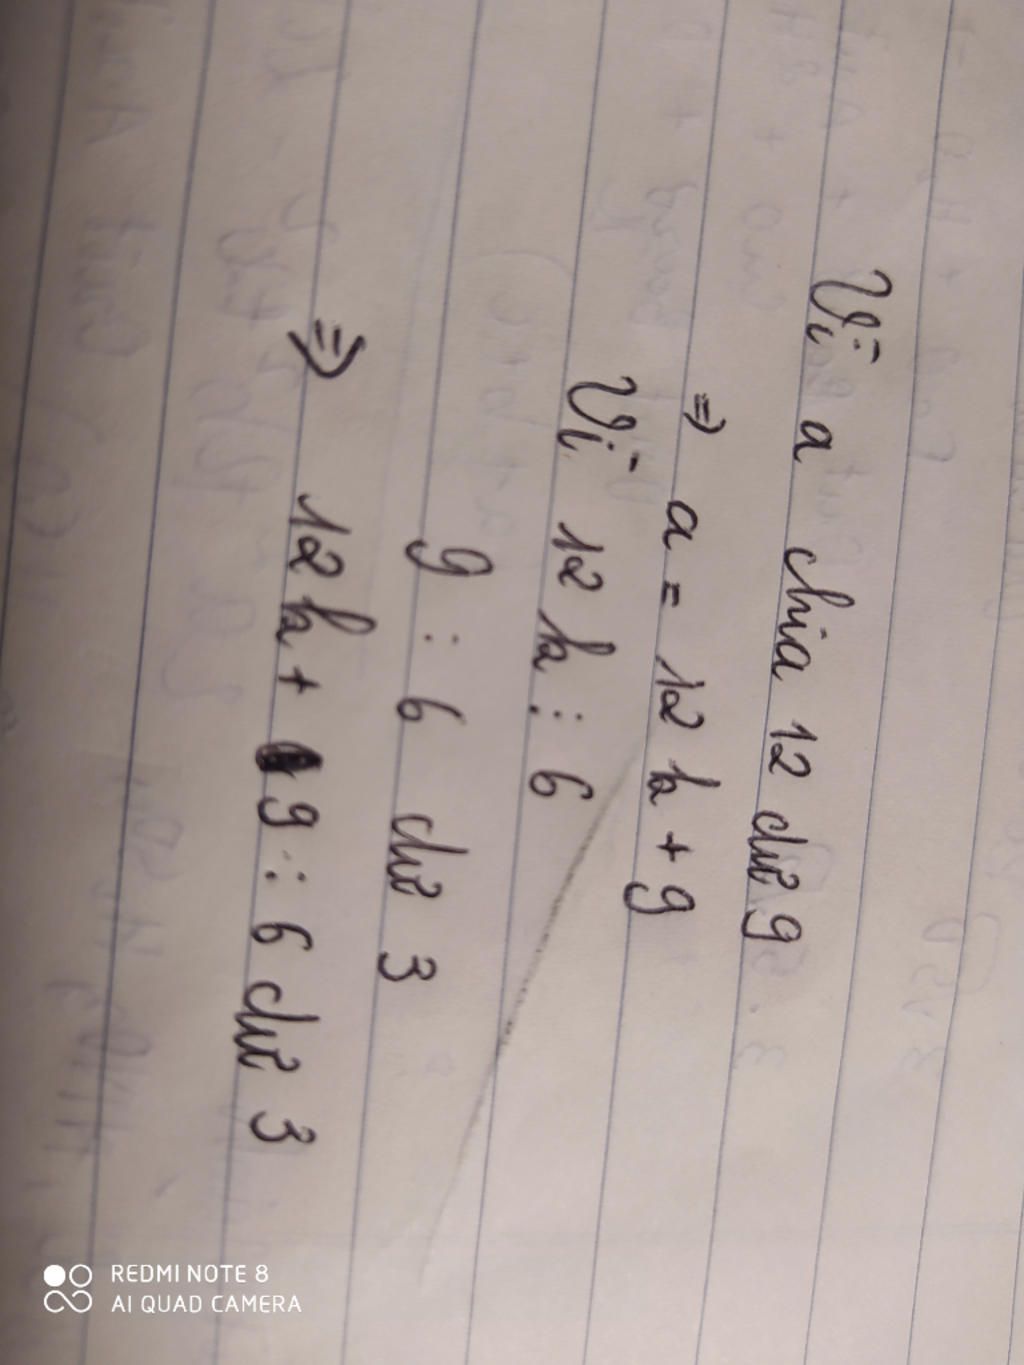 Vì a chia 12 dư 9
⇒ a = 12k + 9
Vì 12k ⋮ 6
9 : 6 dư 3
⇒ 12k + 9 : 6 dư 3
REDMI NOTE 8
AI QUAD CAMERA